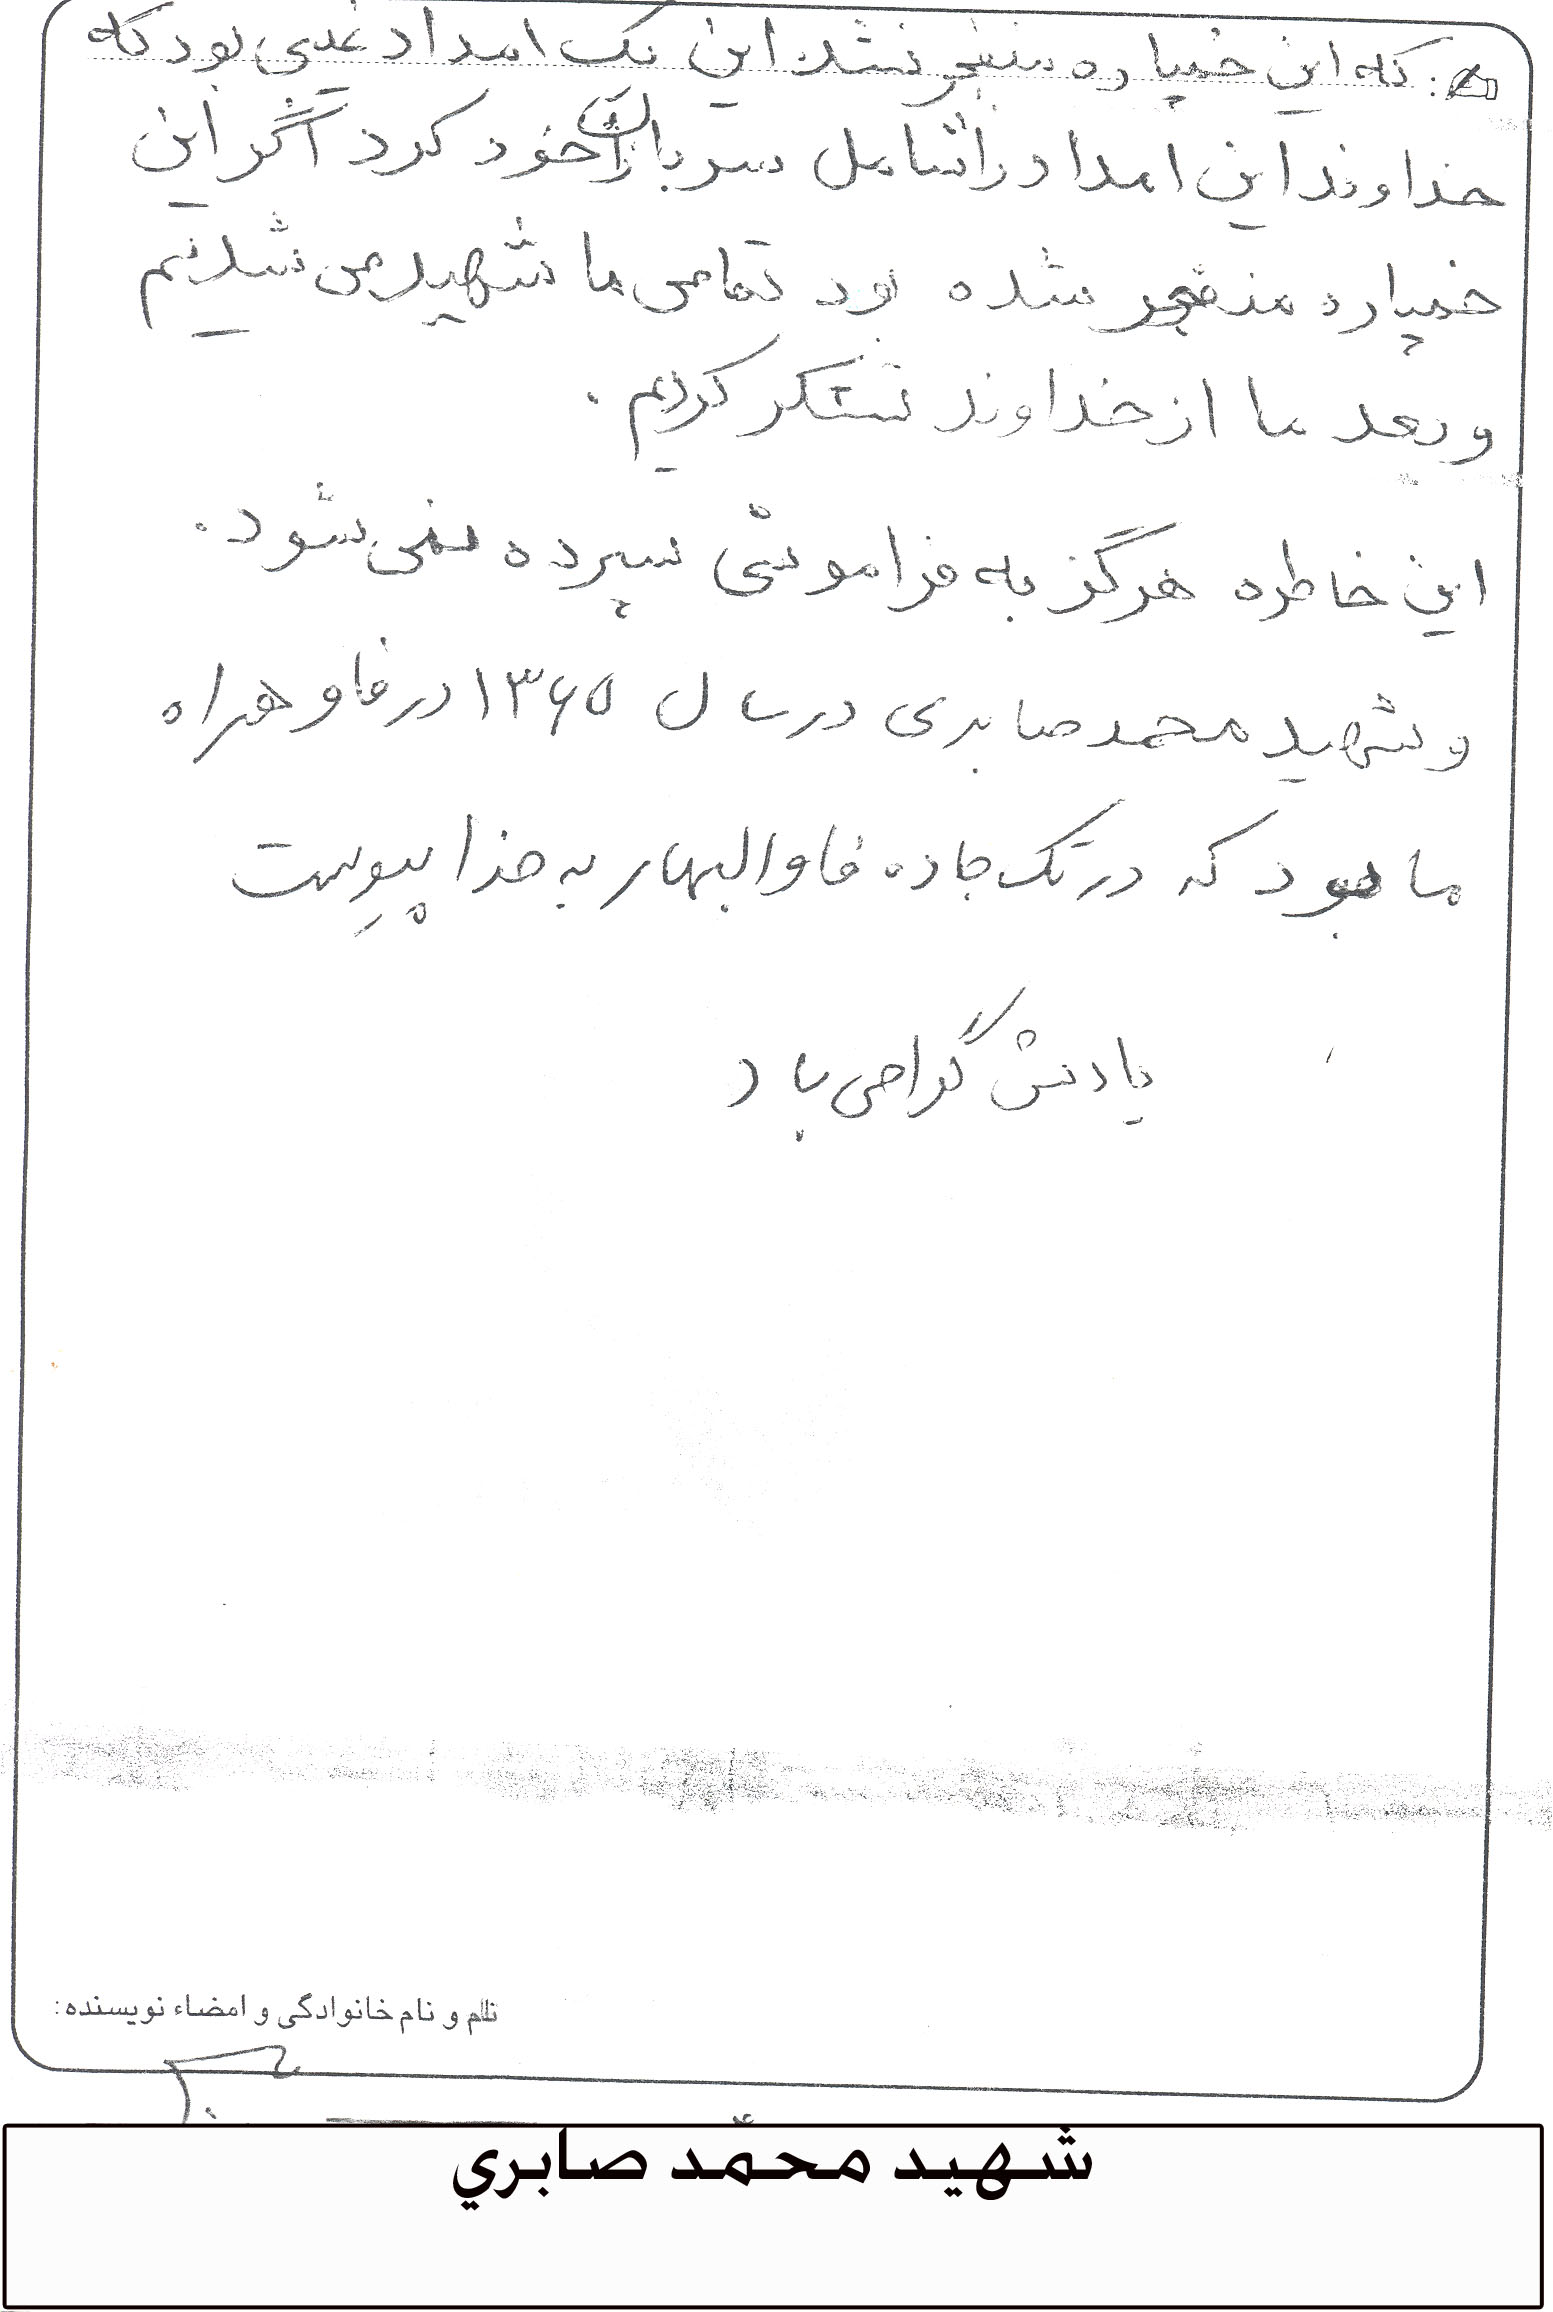 که این خمپاره منفجر نشد. این یک امداد غیبی بود که
خداوند این امداد را شامل سربازان خود کرد اگر این
خمپاره منفجر شده بود تمامی ما شهید می شدیم
و بعد ما از خداوند تشکر کردیم.
این خاطره هرگز به فراموشی سپرده نمی شود.
و شهید محمد صابری در سال ۱۳۶۵ در فاو همراه
ما بود که در تک جاده فاو البهار به خدا پیوست
یادش گرامی باد
نام و نام خانوادگی و امضاء نویسنده:
شهيد محمّد صابري